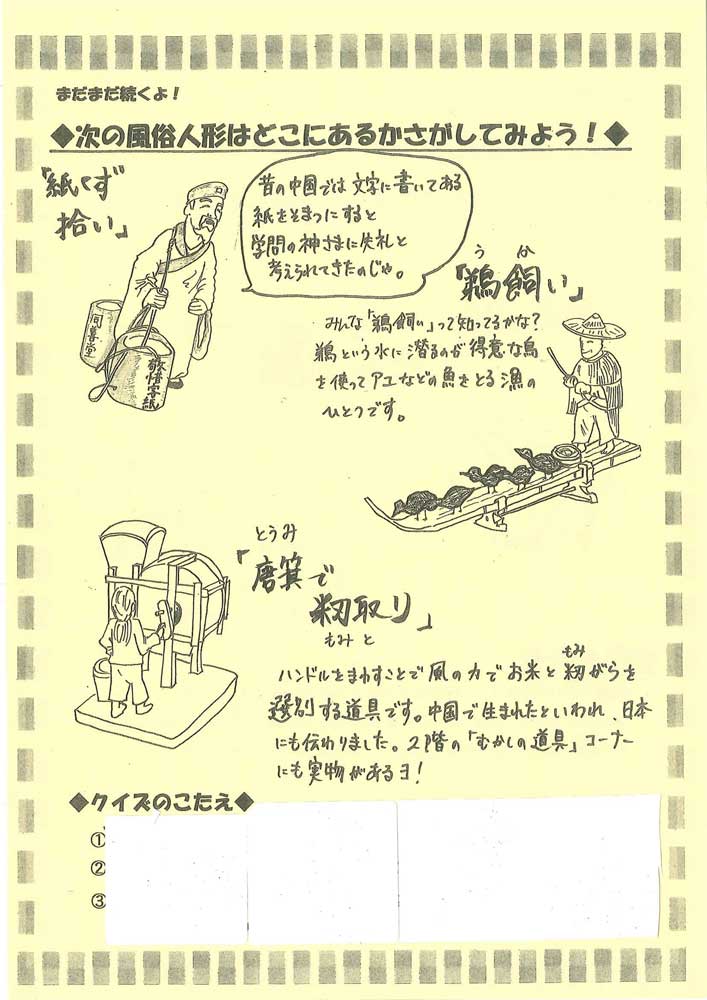 まだまだ続くよ！
◆次の風俗人形はどこにあるかさがしてみよう！◆
「紙くず
拾い」
昔の中国では文字に書いてある
紙をそまつにすると
学問の神さまに失礼と
考えられてきたのじゃ。
同善堂
敬惜字紙
うか
「鵜飼い」
みんな「鵜飼い」って知ってるかな？
鵜という水に潜るのが得意な鳥
を使ってアユなどの魚をとる漁の
ひとつです。
とうみ
「唐箕で
籾取り」
もみと
もみ
ハンドルをまわすことで風の力でお米と籾がらを
選別する道具です。中国で生まれたといわれ、日本
にも伝わりました。2階の「むかしの道具」コーナー
にも実物があるヨ！
◆クイズのこたえ◆
①
②
③